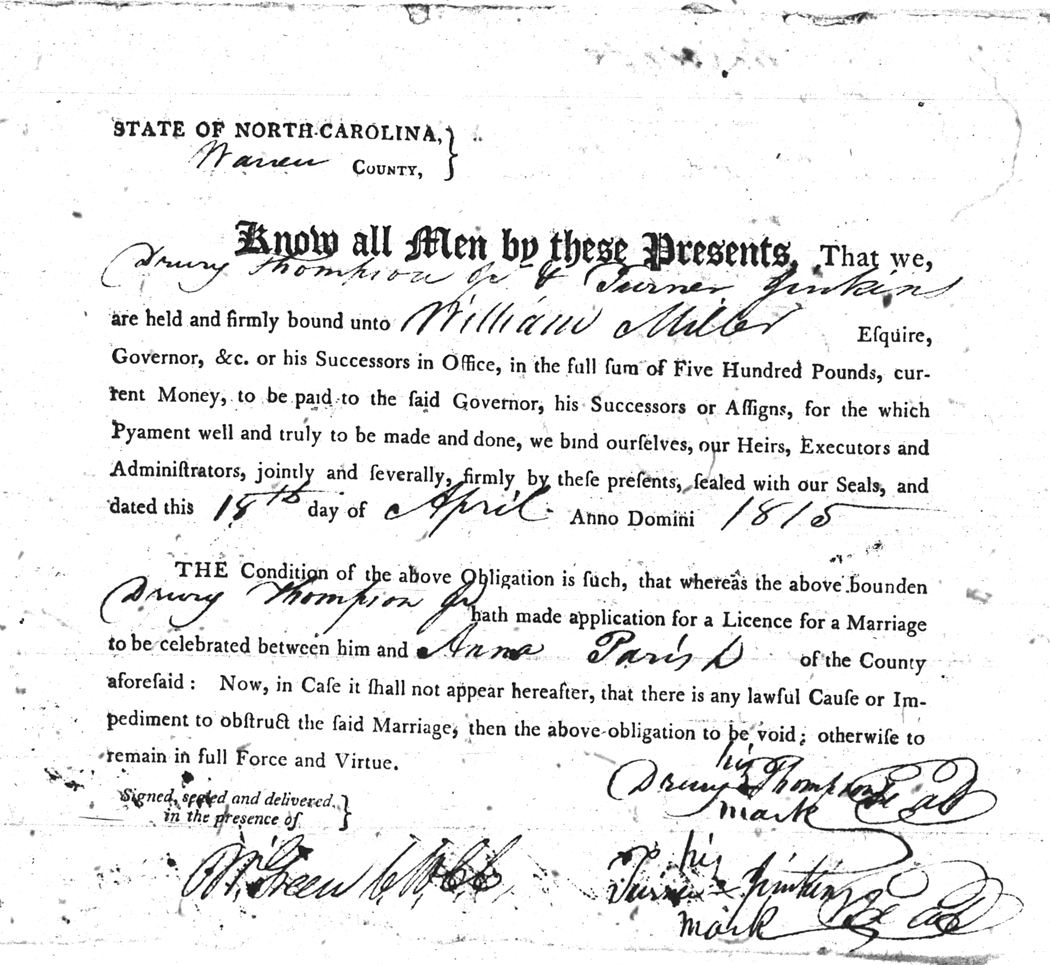 STATE OF NORTH-CAROLINA,
Warren COUNTY,
Know all Men by these Presents, That we,
Drury Thompson Jr & Turner Jinkins
are held and firmly bound unto William Miller Eſquire,
Governor, &c. or his Successors in Office, in the full ſum of Five Hundred Pounds, cur-
rent Money, to be paid to the ſaid Governor, his Successors or Aſſigns, for the which
Pyament well and truly to be made and done, we bind ourſelves, our Heirs, Executors and
Adminiſtrators, jointly and ſeverally, firmly by theſe preſents, ſealed with our Seals, and
dated this 18th day of April Anno Domini 1815
THE Condition of the above Obligation is ſuch, that whereas the above bounden
Drury Thompson Jr hath made application for a Licence for a Marriage
to be celebrated between him and Anna Parish of the County
aforeſaid: Now, in Caſe it ſhall not appear hereafter, that there is any lawful Cauſe or Im-
pediment to obſtruct the ſaid Marriage, then the above obligation to be void; otherwiſe to
remain in full Force and Virtue.
his
Drury Thompson Seal
mark
Signed, sealed and delivered,
in the presence of
Wm Green
his
Turner Jinkins Seal
mark